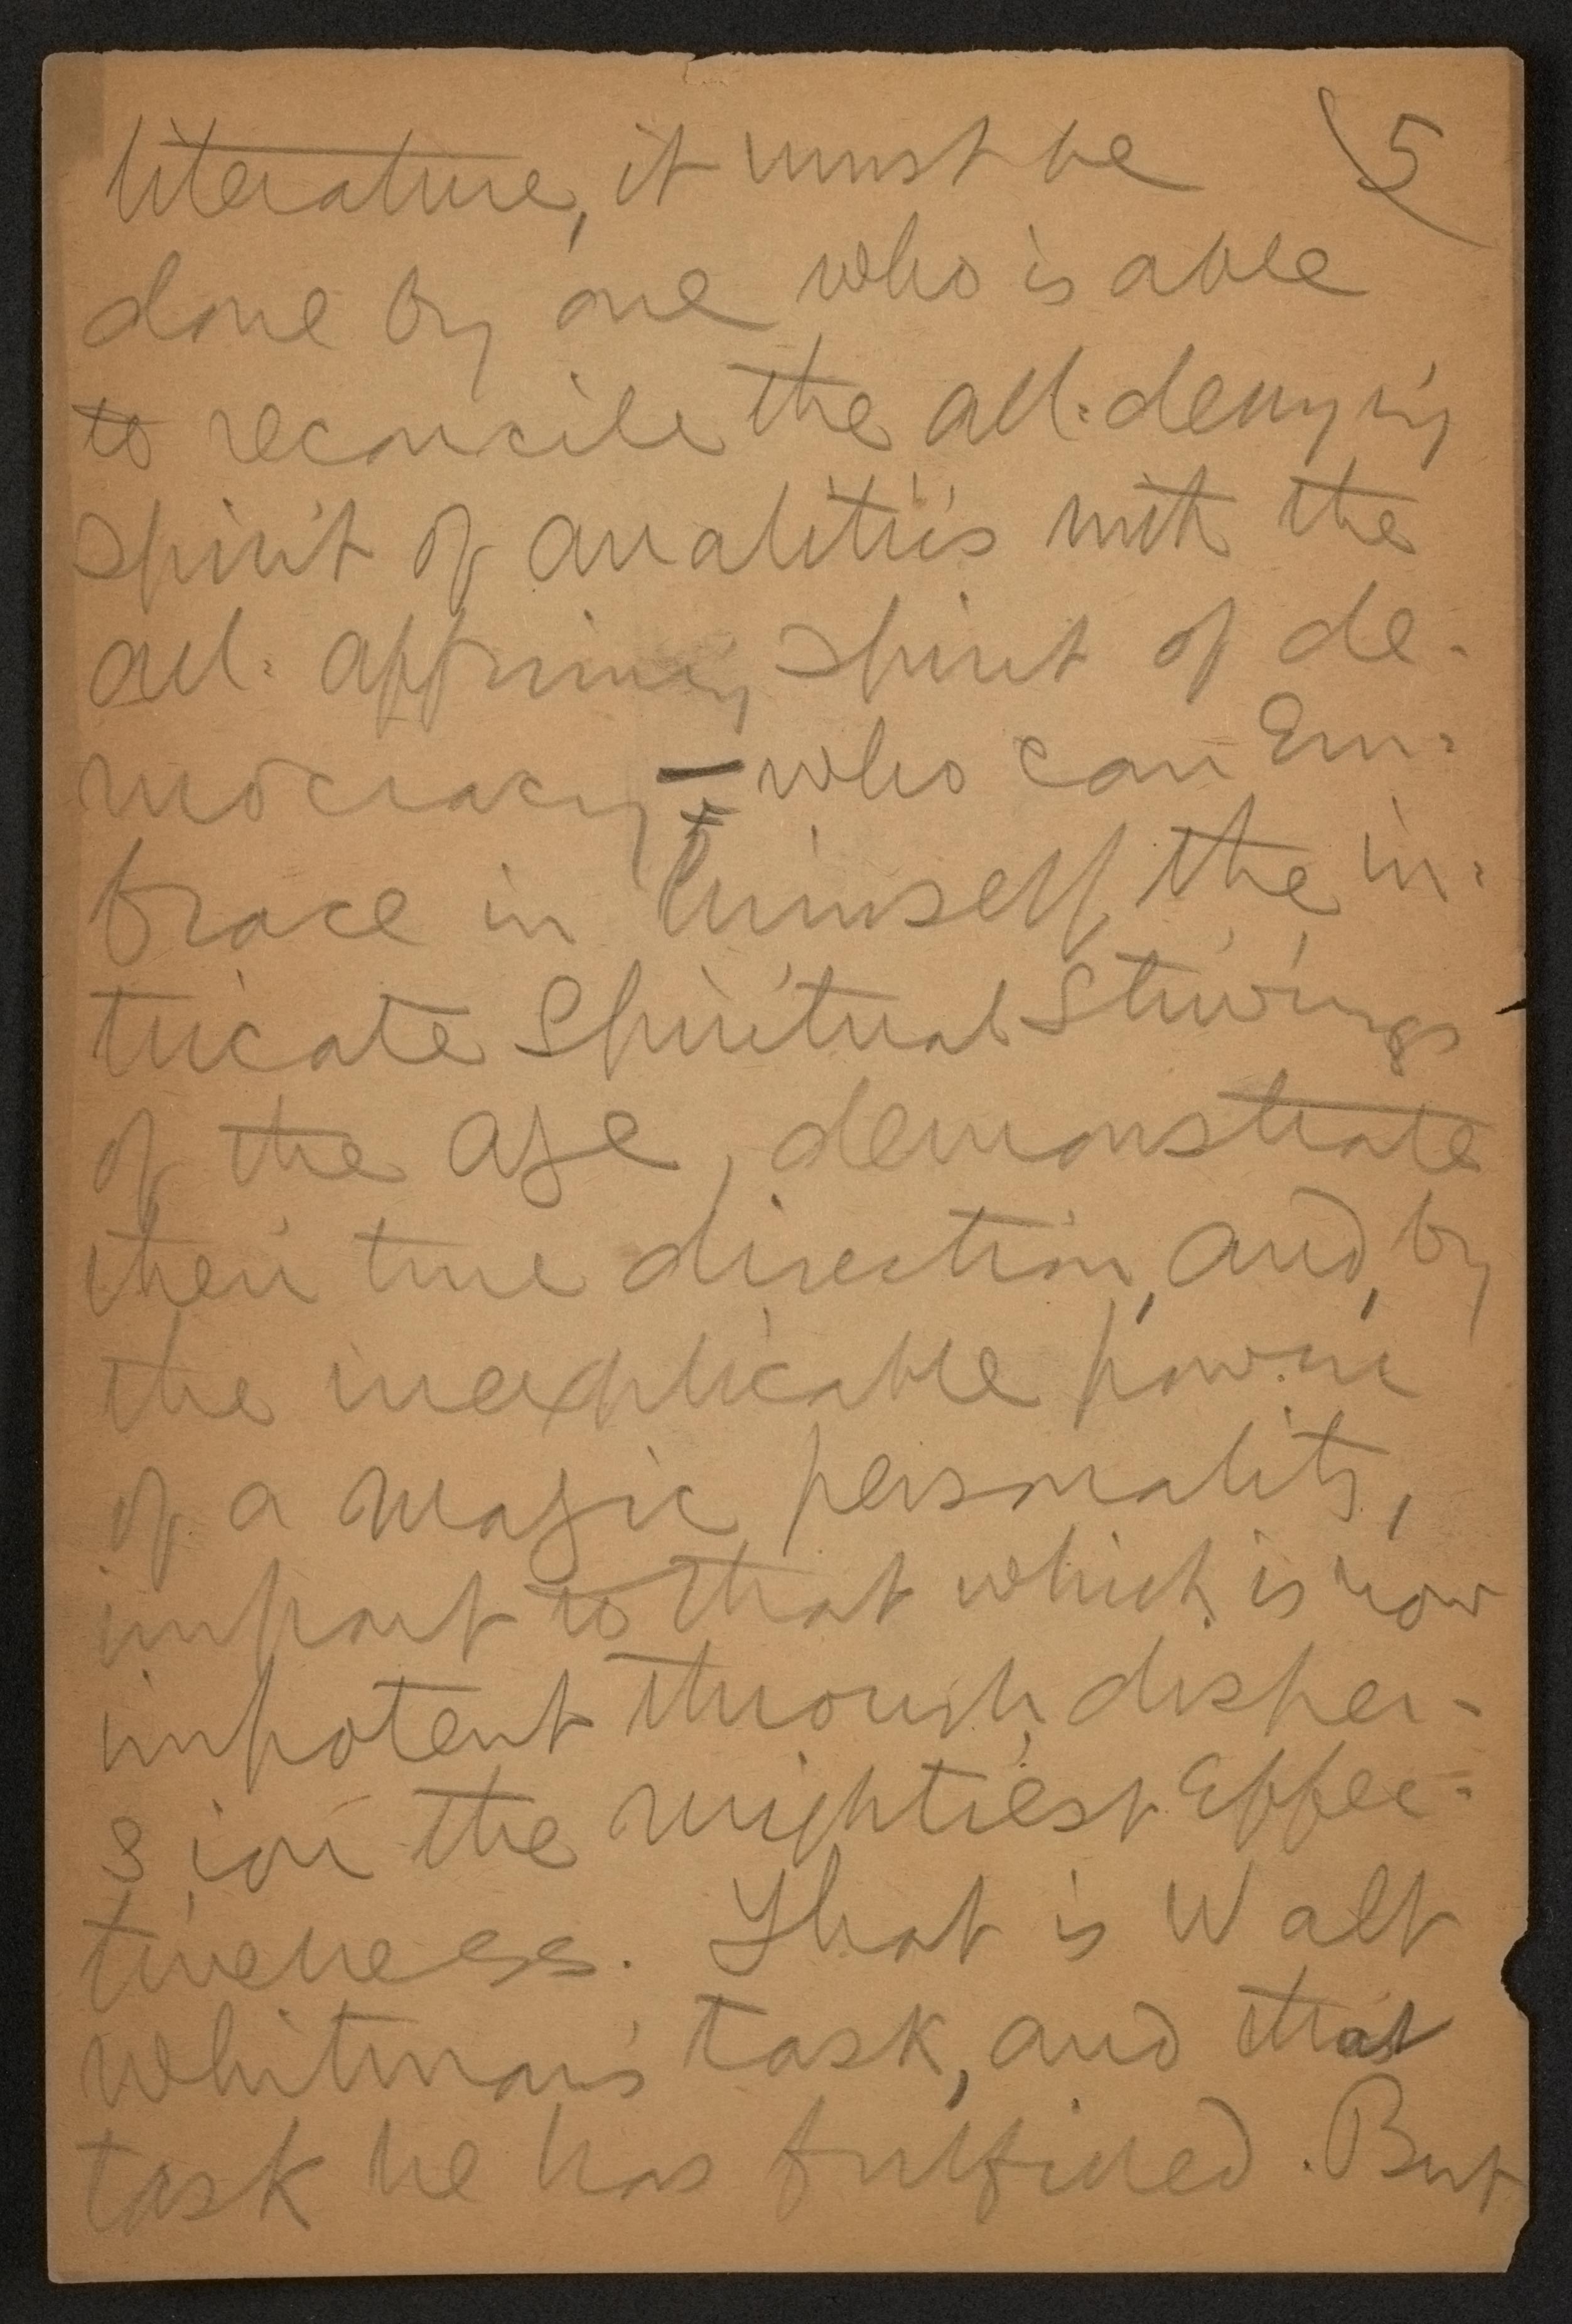 5
literature, it must be
done by one who is able
to reconcile the all-denying
spirit of analitiis with the
all-affirming spirit of de-
mocracy — who can em-
brace in himself the in-
tricate spiritual strivings
of the age, demonstrate
their true direction, and, by
the inexplicable power
of a magic personality,
impart to that which is now
impotent through disper-
sion the mightiest effec-
tiveness. That is Walt
Whitman's task, and that
task he has fulfilled. But